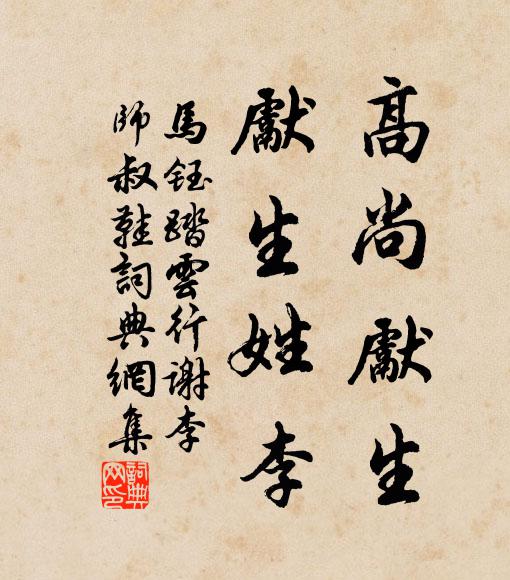 高尚獻生
獻生姓李
馬鈺踏雲行谢李
師叔鞋詞典網集
詞典网印